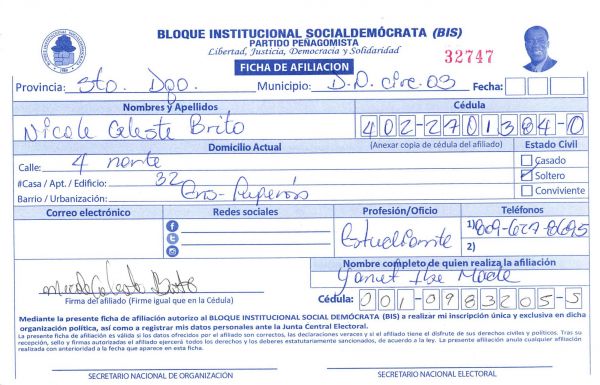 BLOQUE INSTITUCIONAL SOCIALDEMÓCRATA (BIS)
PARTIDO PEÑAGOMISTA
Libertad, Justicia, Democracia y Solidaridad
32747
FICHA DE AFILIACION
Provincia: Sto. Dgo. Municipio: D.N. circ. 03 Fecha:
Nombres y Apellidos Cédula
Nicole Celeste Brito 402-2701384-0
Domicilio Actual (Anexar copia de cédula del afiliado) Estado Civil
Calle: 4 norte Casado
#Casa / Apt. / Edificio: 32 Soltero
Barrio / Urbanización: Ens- Conviviente
Correo electrónico Redes sociales Profesión/Oficio Teléfonos
Estudiante 1) 809-627-8695
2)
Nombre completo de quien realiza la afiliación
Nicole Celeste Brito Yanet
Firma del afiliado (Firme igual que en la Cédula) Cédula: 001-0983205-5
Mediante la presente ficha de afiliación autorizo al BLOQUE INSTITUCIONAL SOCIAL DEMÓCRATA (BIS) a realizar mi inscripción única y exclusiva en dicha
organización política, así como a registrar mis datos personales ante la Junta Central Electoral.
La presente ficha de afiliación es válida si los datos ofrecidos por el afiliado son correctos, las declaraciones veraces y si el afiliado tiene el disfrute de sus derechos civiles y políticos. Tras su
recepción, sello y firmas autorizadas el afiliado ejercerá todos los derechos y los deberes estatutariamente sancionados, de acuerdo a la ley. La presente afiliación anula cualquier afiliación
realizada con anterioridad a la fecha que aparece en esta ficha.
SECRETARIO NACIONAL DE ORGANIZACIÓN SECRETARIO NACIONAL ELECTORAL